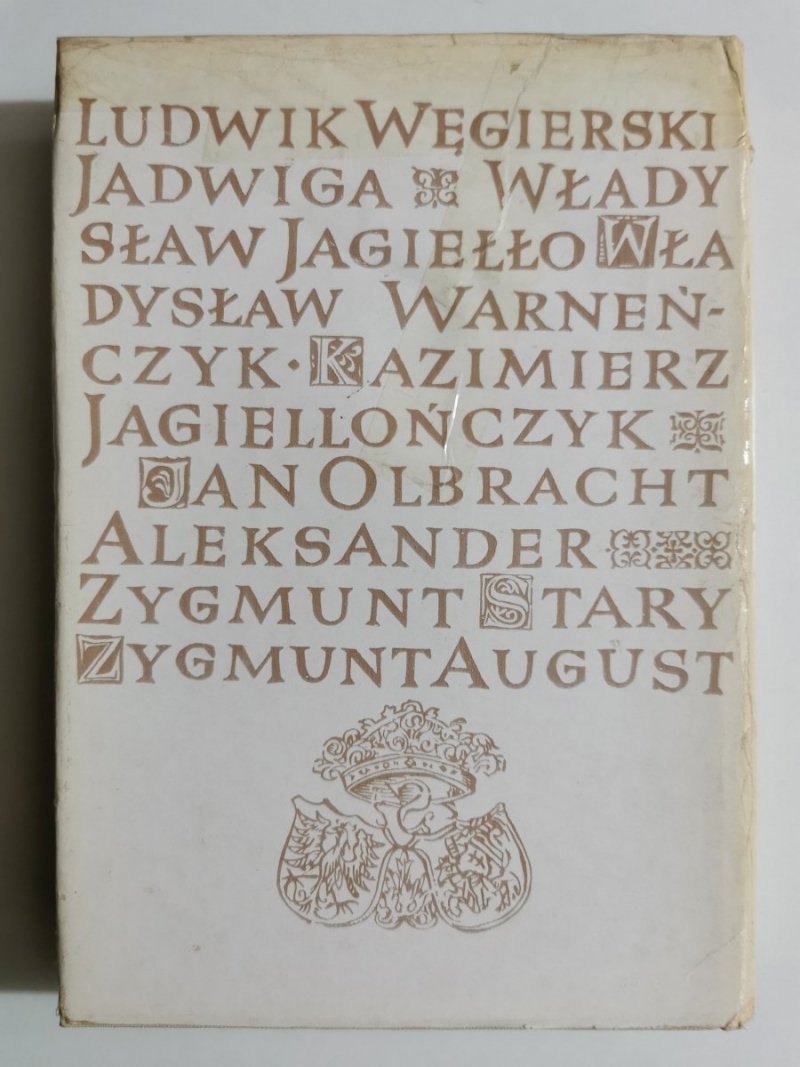 LUDWIK WĘGIERSKI
JADWIGA WŁADY
SŁAW JAGIEŁŁO WŁA
DYSŁAW WARNEŃ-
CZYK · KAZIMIERZ
JAGIELLOŃCZYK
JAN OLBRACHT
ALEKSANDER
ZYGMUNT STARY
ZYGMUNT AUGUST